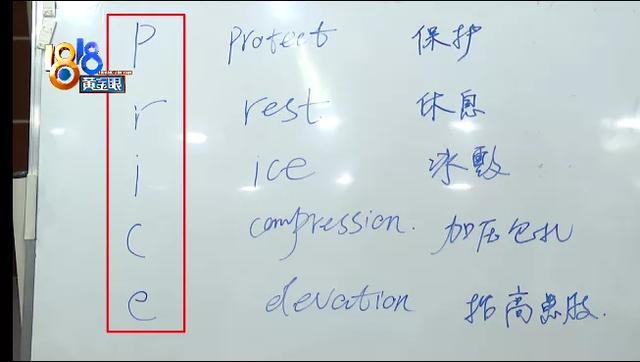 1818
黄金眼
P protect 保护
r rest. 休息
i ice 冰敷
C compression. 加压包扎
e elevation 抬高患肢.